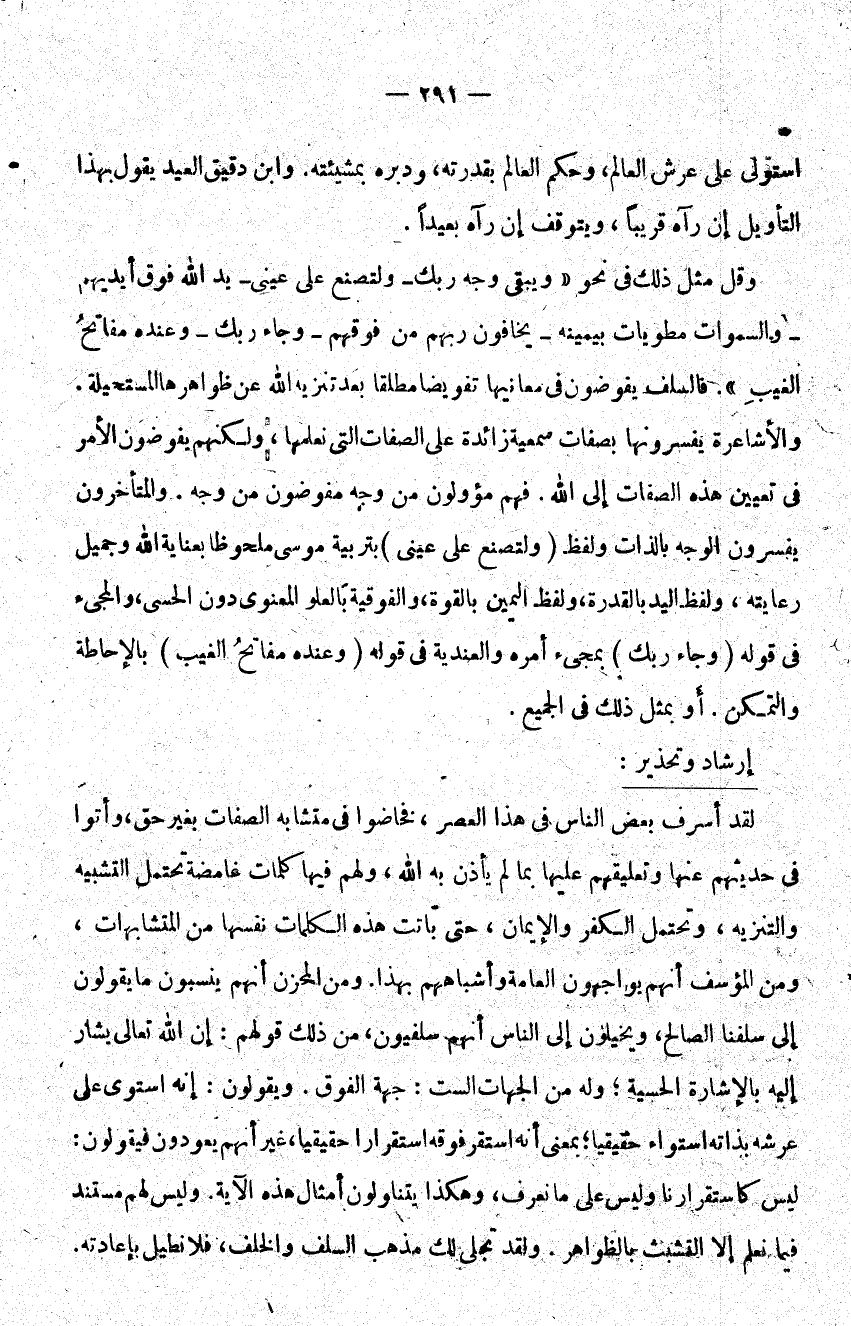 — ٢٩١ —
استولى على عرش العالم، وحكم العالم بقدرته، ودبره بمشيئته. وابن دقيق العيد يقول بهذا
التأويل إن رآه قريباً ، ويتوقف إن رآه بعيداً .
وقل مثل ذلك فى نحو « ويبقى وجه ربك ـ ولتصنع على عينى ـ يد الله فوق أيديهم
ـ والسموات مطويات بيمينه ـ يخافون ربهم من فوقهم ـ وجاء ربك ـ وعنده مفاتحُ
الغيب ». فالسلف يفوضون فى معانيها تفويضا مطلقا بعد تنزيه الله عن ظواهرها المستحيلة .
والأشاعرة يفسرونها بصفات سمعية زائدة على الصفات التى نعلمها ، ولكنهم يفوضون الأمر
فى تعيين هذه الصفات إلى الله . فهم مؤولون من وجه مفوضون من وجه . والمتأخرون
يفسرون الوجه بالذات ولفظ ( ولتصنع على عينى ) بتربية موسى ملحوظا بعناية الله وجميل
رعايته ، ولفظ اليد بالقدرة، ولفظ اليمين بالقوة، والفوقية بالعلو المعنوى دون الحسى، والمجىء
فى قوله ( وجاء ربك ) بمجىء أمره والعندية فى قوله ( وعنده مفاتحُ الغيب ) بالإحاطة
والتمكن . أو بمثل ذلك فى الجميع .
إرشاد وتحذير :
لقد أسرف بعض الناس فى هذا العصر ، فخاضوا فى متشابه الصفات بغير حق، وأتوا
فى حديثهم عنها وتعليقهم عليها بما لم يأذن به الله ، ولهم فيها كلمات غامضة تحتمل التشبيه
والتنزيه ، وتحتمل الكفر والإيمان ، حتى باتت هذه الكلمات نفسها من المتشابهات ،
ومن المؤسف أنهم يواجهون العامة وأشباههم بهذا. ومن المحزن أنهم ينسبون ما يقولون
إلى سلفنا الصالح، ويخيلون إلى الناس أنهم سلفيون، من ذلك قولهم : إن الله تعالى يشار
إليه بالإشارة الحسية ؛ وله من الجهات الست : جهة الفوق . ويقولون : إنه استوى على
عرشه بذاته استواء حقيقيا؛ بمعنى أنه استقر فوقه استقرارا حقيقيا، غير أنهم يعودون فيقولون:
ليس كاستقرارنا وليس على ما نعرف، وهكذا يتناولون أمثال هذه الآية. وليس لهم مستند
فيما نعلم إلا التشبث بالظواهر . ولقد تجلى لك مذهب السلف والخلف، فلا نطيل بإعادته.